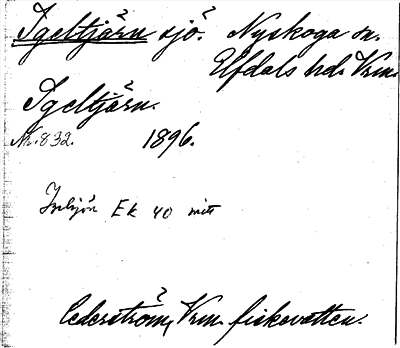 Igeltjärn sjö. Nyskoga sn.
Elfdals hd. Vrm.
Igeltjärn.
Nr. 832. 1896.
Ek 40 mitt
Cederström, Vrm. fiskevatten.